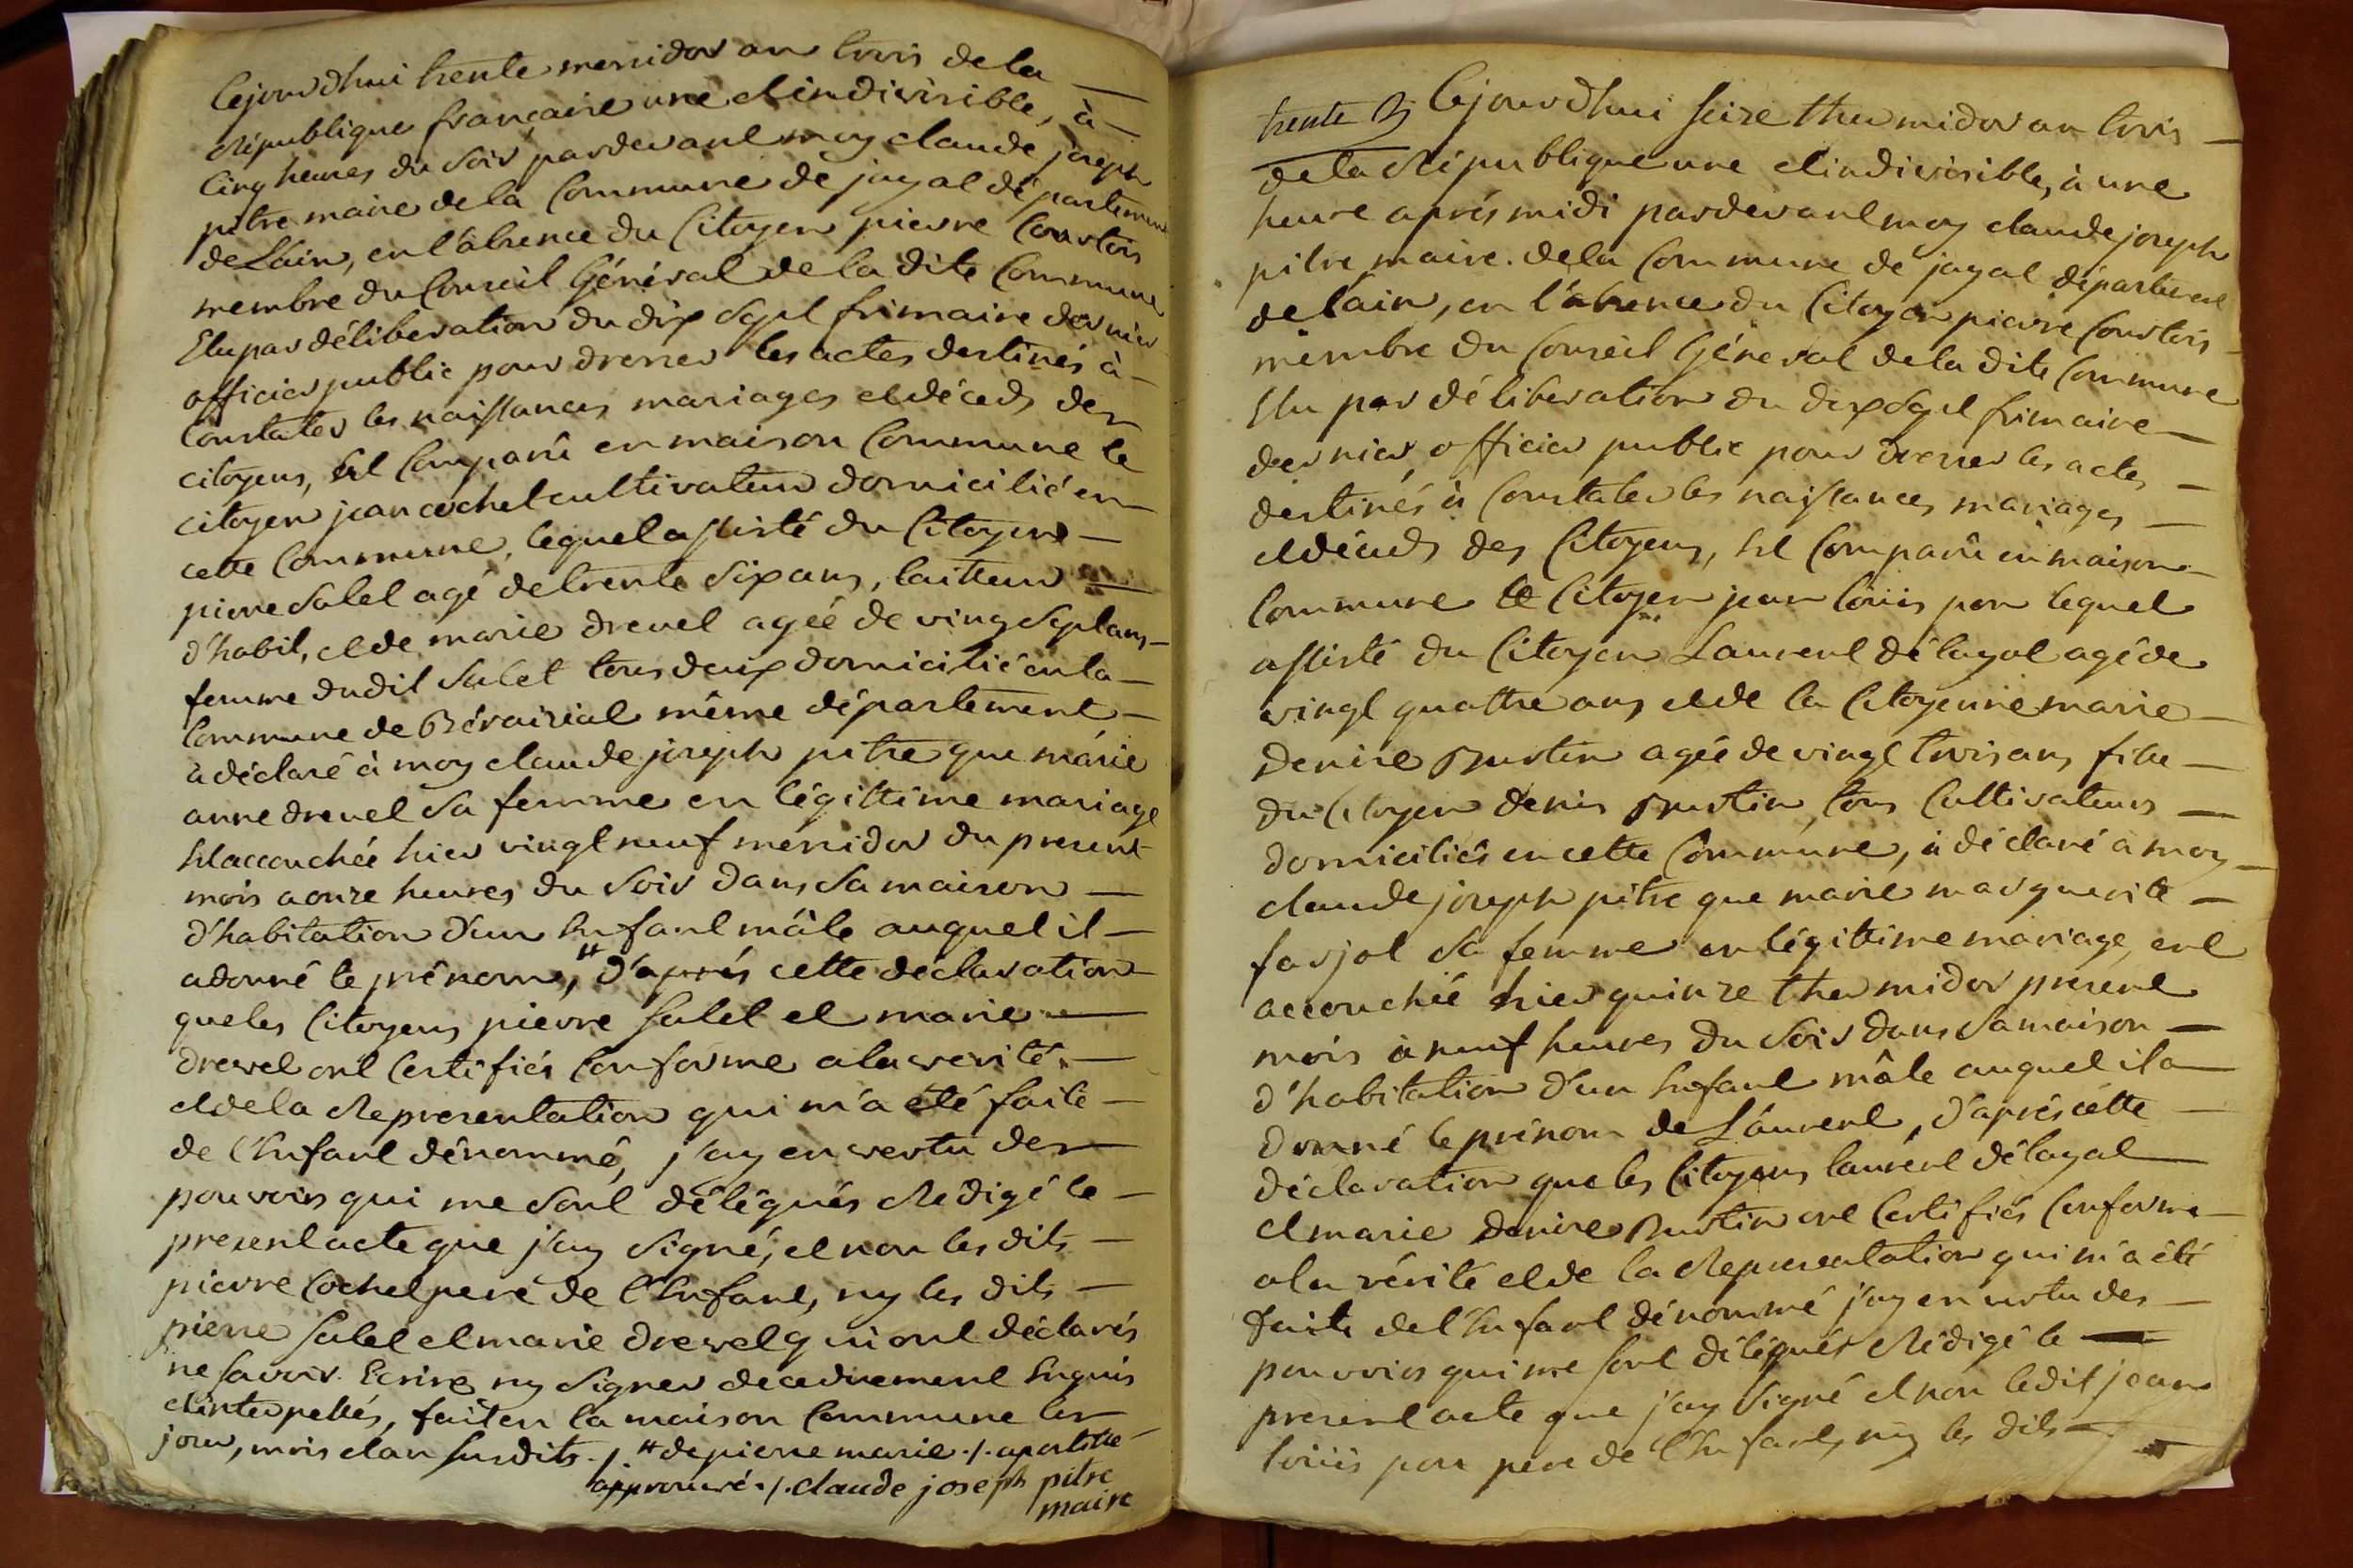 Cejourdhui trente messidor an trois de la
République française une et indivisible, à
Cinq heures du Soir pardevant moy claude joseph
pitre maire de la Commune de jayat département
de Lain, en l'absence du Citoyen pierre Courtois
membre du Conseil Général de la dite Commune
Elu par déliberation du dix Sept frimaire dernier
officier public pour dresser les actes destinés à
Constater les naissances mariages et déceds des
citoyens, Est Comparû en maison Commune le
citoyen jean cochet cultivateur domicilié en
cette Commune, lequel assisté du Citoyen
pierre Salet agé de trente Six ans, tailleur
d'habit, et de marie drevet agée de ving Sept ans
femme dudit Salet tous deux domicilié en la
Commune de Béraizial même département
a déclaré à moy claude joseph pitre que marie
anne drevet Sa femme en légittime mariage
Est accouchée hier vingt neuf messidor du present
mois a onze heures du Soir dans Sa maison
d'habitation d'un Enfant mâle auquel il
a donné le prénom, # d'aprés cette déclaration
que les Citoyens pierre Salet et marie
drevet ont Certifiés Conforme a la verité
et de la Representation qui m'a été faite
de l'Enfant dénommé, j'ay en vertu des
pouvoirs qui me Sont délégués Rédigé le
present acte que j'ay Signé, et non les dits
pierre Cochet pere de l'Enfant, ny les dits
pierre Salet et marie drevet qui ont déclarés
ne Savoir Ecrire ny Signer de ce duement Enquis
et interpellés, fait en la maison Commune les
jour, mois et an Susdits ./. # de pierre marie ./. apostille
approuvé ./. claude joseph pitre
maire
trente
Cejourdhui Seize thermidor an trois
de la République une et indivisible, à une
heure aprés midi pardevant moy claude joseph
pitre maire de la Commune de jayat département
de lain, en l'absence du Citoyen pierre Courtois
membre du Conseil Géneral de la dite Commune
Elu par déliberation du dix Sept frimaire
dernier, officier public pour dresser les actes
destinés à Constater les naissances mariages
et déceds des Citoyens, Est Comparû en maison
Commune le Citoyen jean loüis pon lequel
assisté du Citoyen Laurent délayat agé de
vingt quattre ans et de la Citoyenne marie
denise Bustin agée de vingt trois ans fille
du Citoyen denis Bustin, tous Cultivateurs
domiciliés en cette Commune, a déclaré a moy
claude joseph pitre que marie marguerite
farjot Sa femme en légittime mariage, est
accouchée hier quinze thermidor present
mois à neuf heures du Soir dans Sa maison
d'habitation d'un Enfant mâle auquel il a
donné le prénom de Laurent, d'aprés cette
déclaration que les Citoyens laurent délayat
et marie denise Bustin ont Certifiés Conforme
a la vérité et de la Representation qui m'a été
faite de l'Enfant dénommé j'ay en vertu des
pouvoirs qui me Sont délégués Rédigé le
present acte que j'ay Signé et non ledit jean
loüis pon pere de l'Enfant, ny les dits